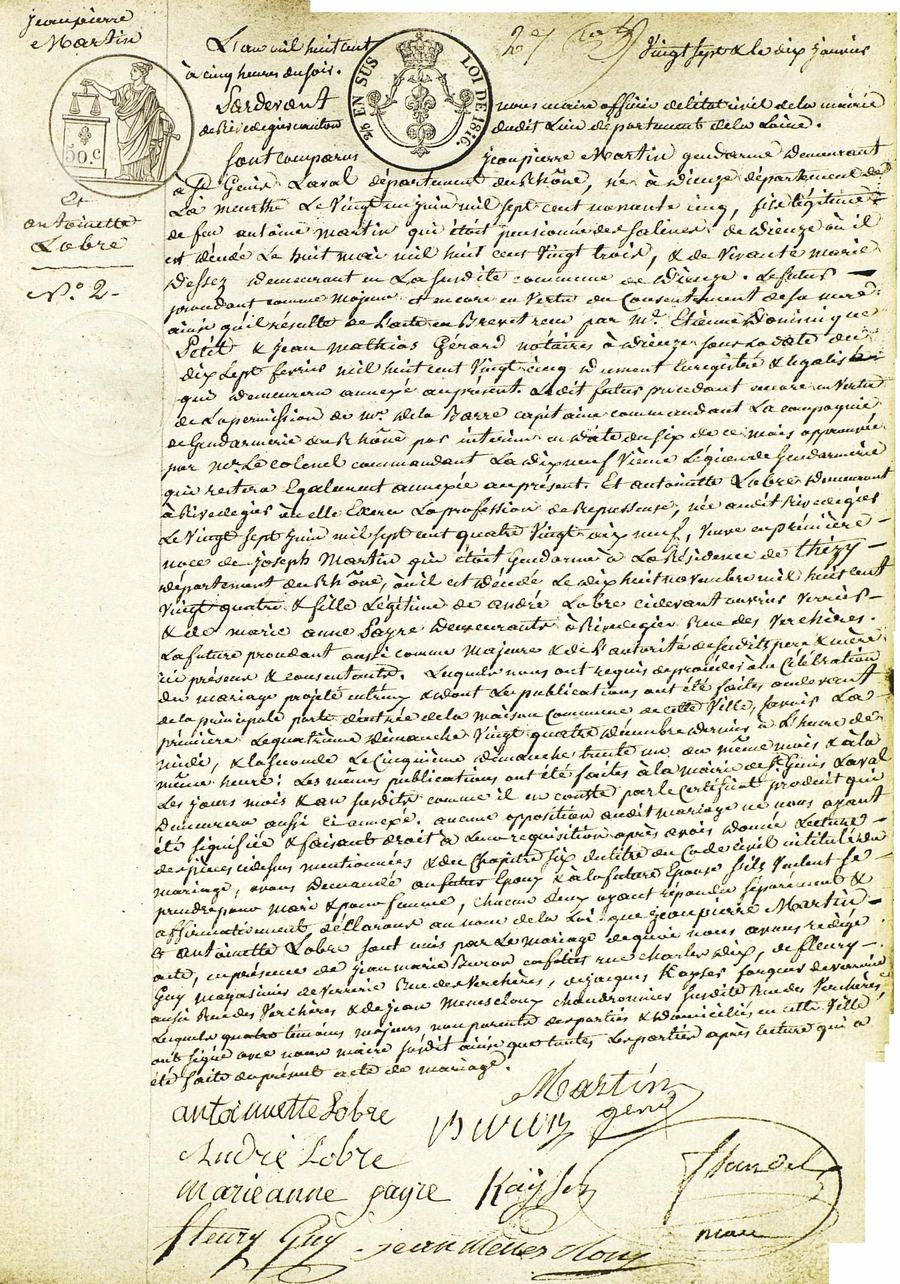 jeanpierre
Martin
50.c
et
antoinette
Lobre
N.o 2.
EN SUS LOI DE 1816.
L'an mil huit cent vingt sept & le dix janvier
à cinq heures du soir.
Pardevant nous maire officier de l'état civil de la mairie
de Rivedegier canton dudit Lieu département de la Loire.
sont comparus jeanpierre Martin gendarme demeurant
à St Genis Laval département du Rhône, né à dieuze département de
La meurthe Le vingt un juin mil sept cent nonante cinq, fils légitime
de feu antoine martin qui étoit pensionné des salines de dieuze où il
est décédé Le huit mai mil huit cent vingt trois, & de vivante marie
dessez demeurant en La susdite commune de dieuze. Le futur
procédant comme majeur & encore en vertu du consentement de sa mere
ainsi qu'il résulte de l'acte en Brevet reçu par me. Etienne Dominique
Petit & jean mathias Gérard notaires à dieuze sous la date du
dix sept fevrier mil huit cent vingt cinq duement Enregistré & légalisé
qui demeurera annexé au présent. Ledit futur procédant encore en vertu
de La permission de mr. de la Barre capitaine commandant La compagnie
de Gendarmerie du Rhône par interim en date du six de ce mois approuvée
par mr. Le colonel commandant La dix neuf vième Légion de Gendarmerie
qui restera Egalement annexée au présent. Et antoinette Lobre demeurant
à Rivedegier où elle Exerce La profession de Repasseuse, née audit Rivedegier
Le vingt sept juin mil sept cent quatre vingt dix neuf, veuve en première
noce de joseph Martin qui étoit Gendarme à La Résidence de thizy
département du Rhône, où il est décédé Le dix huit novembre mil huit cent
vingt quatre & fille Légitime de andré Lobre cidevant ouvrier verrier
& de marie anne Payre demeurants à Rivedegier Rue des Verchères.
La future procédant aussi comme majeure & de L'autorité de sesdits pere & mère
ici présens & consentants. Lesquels nous ont requis de procéder à la célébration
du mariage projeté entr'eux & dont Les publications ont été faites au devant
de la principale porte d'entrée de la maison commune de cette Ville, savoir La
première Le quatrième dimanche vingt quatre décembre dernier à L'heure de
midi, & la seconde Le cinquième dimanche trente un, du même mois & à la
même heure: Les mêmes publications ont été faites à la mairie de St Genis Laval
Les jours mois & an susdits comme il en conste par le certificat produit qui
demeurera aussi ci annexé. aucune opposition audit mariage ne nous ayant
été signifiée & faisant droit à leur requisition après avoir donné lecture
des pièces cidessus mentionnées & du chapitre six du titre du code civil intitulé du
mariage, avons demandé au futur Epoux & à la future Epouse s'ils veulent se
prendre pour mari & pour femme, chacun deux ayant répondu séparément &
affirmativement, déclarons au nom de la Loi que jeanpierre Martin
& antoinette Lobre sont unis par Le mariage de quoi nous avons rédigé
acte, en présence de jean marie Buron cafetier rue charles dix, de fleury
Guy magasinier de verrerie Rue des Verchères, de jacques Kayser forgeur de verrerie
aussi Rue des Verchères & de jean Menescloux chaudronnier susdite Rue des Verchères
Lesquels quatre témoins majeurs non parents des parties & domiciliés en cette Ville,
ont signé avec nous maire susdit ainsi que toutes Les parties après lecture qui a
été faite du présent acte de mariage.
Martin
gene
antoinette Lobre
Buron
André Lobre
marieanne payre
Kaÿser
fleury Guy
jean Menescloux
maire